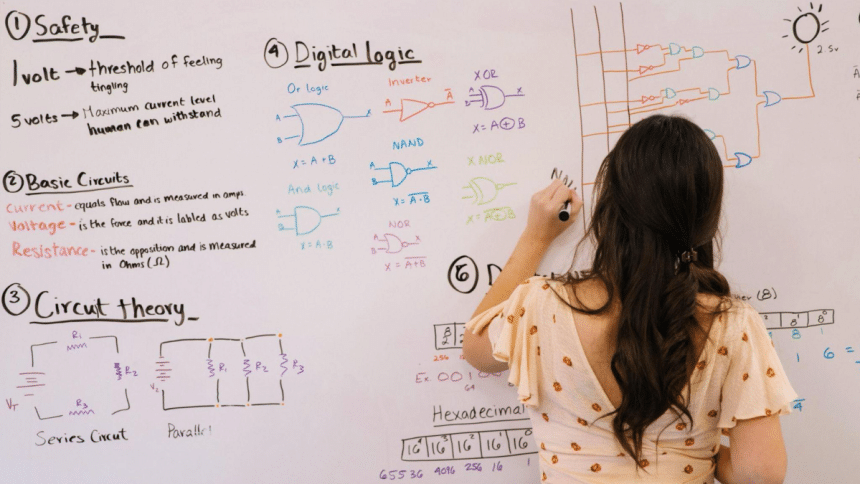 ① Safety
1 volt → threshold of feeling
tingling
5 volts → Maximum current level
human can withstand
② Basic Circuits
Current - equals flow and is measured in amps
Voltage - is the force and it is labled as volts
Resistance - is the opposition and is measured
in Ohms (Ω)
③ Circuit theory
R₁
R₂
R₃
V_T
Series Circut
R₁
R₂
R₃
Parallel
④ Digital logic
Or logic
A
B
X
X = A+B
Inverter
A
A̅
XOR
A
B
X
X = A⊕B
NAND
A
B
X
X = \overline{A·B}
X NOR
X = \overline{A⊕B}
And logic
A
X
X = A·B
NOR
A
B
X
X = \overline{A+B}
2.5v
(8)
8¹ 8⁰
8 1
1 6 =
4
256
Ex 001
64
Hexadecimal
16⁴ 16³ 16² 16¹ 16⁰
65536 4096 256 16 1